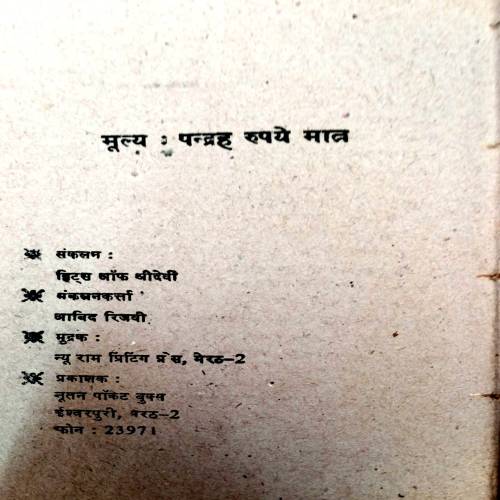 मूल्य : पन्द्रह रुपये मात्र
संकलन :
हिट्स ऑफ श्रीदेवी
संकलनकर्त्ता
आबिद रिजवी
मुद्रक :
न्यू राम प्रिंटिंग प्रेस, मेरठ-2
प्रकाशक :
नूतन पॉकेट बुक्स
ईश्वरपुरी, मेरठ-2
फोन : 23971